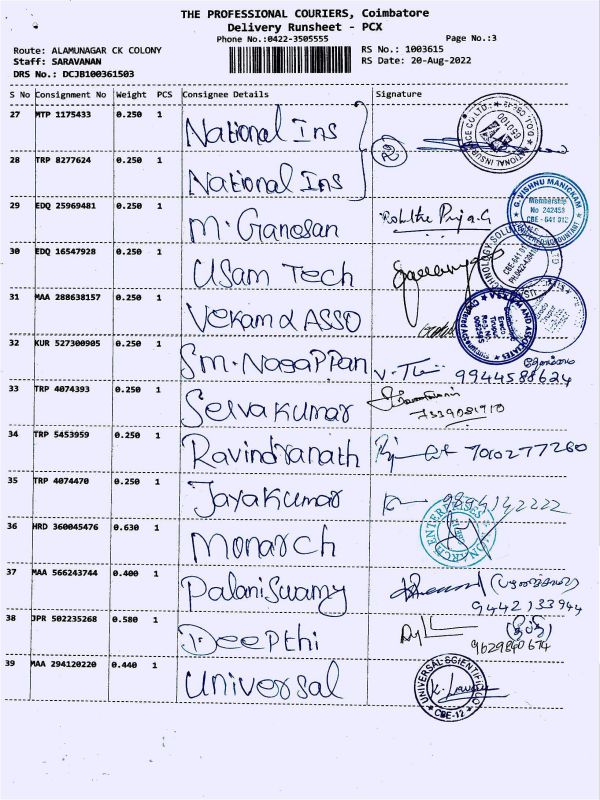 THE PROFESSIONAL COURIERS, Coimbatore
Delivery Runsheet - PCX
Phone No.:0422-3505555
Page No.:3
Route: ALAMUNAGAR CK COLONY
RS No.: 1003615
Staff: SARAVANAN
RS Date: 20-Aug-2022
DRS No.: DCJB100361503
S No Consignment No Weight PCS Consignee Details Signature
27 MTP 1175433 0.250 1 National Ins
28 TRP 8277624 0.250 1 National Ins
29 EDQ 25969481 0.250 1 M. Ganesan
G. VISHNU MANICKAM
Membership
No 242453
CBE - 641 012
30 EDQ 16547928 0.250 1 Usam Tech
31 MAA 288638157 0.250 1 Vekam & ASSO
32 KUR 527300905 0.250 1 Sm. Nagappan 9944588624
33 TRP 4074393 0.250 1 Selvakumar 7339081910
34 TRP 5453959 0.250 1 Ravindranath 7010277260
35 TRP 4074470 0.250 1 Jayakumar
36 HRD 360045476 0.630 1 Monarch
37 MAA 566243744 0.400 1 Palaniswamy
9442133944
38 JPR 502235268 0.580 1 Deepthi
9629840674
39 MAA 294120220 0.440 1 Universal
UNIVERSAL SCIENTIFIC
CBE-12